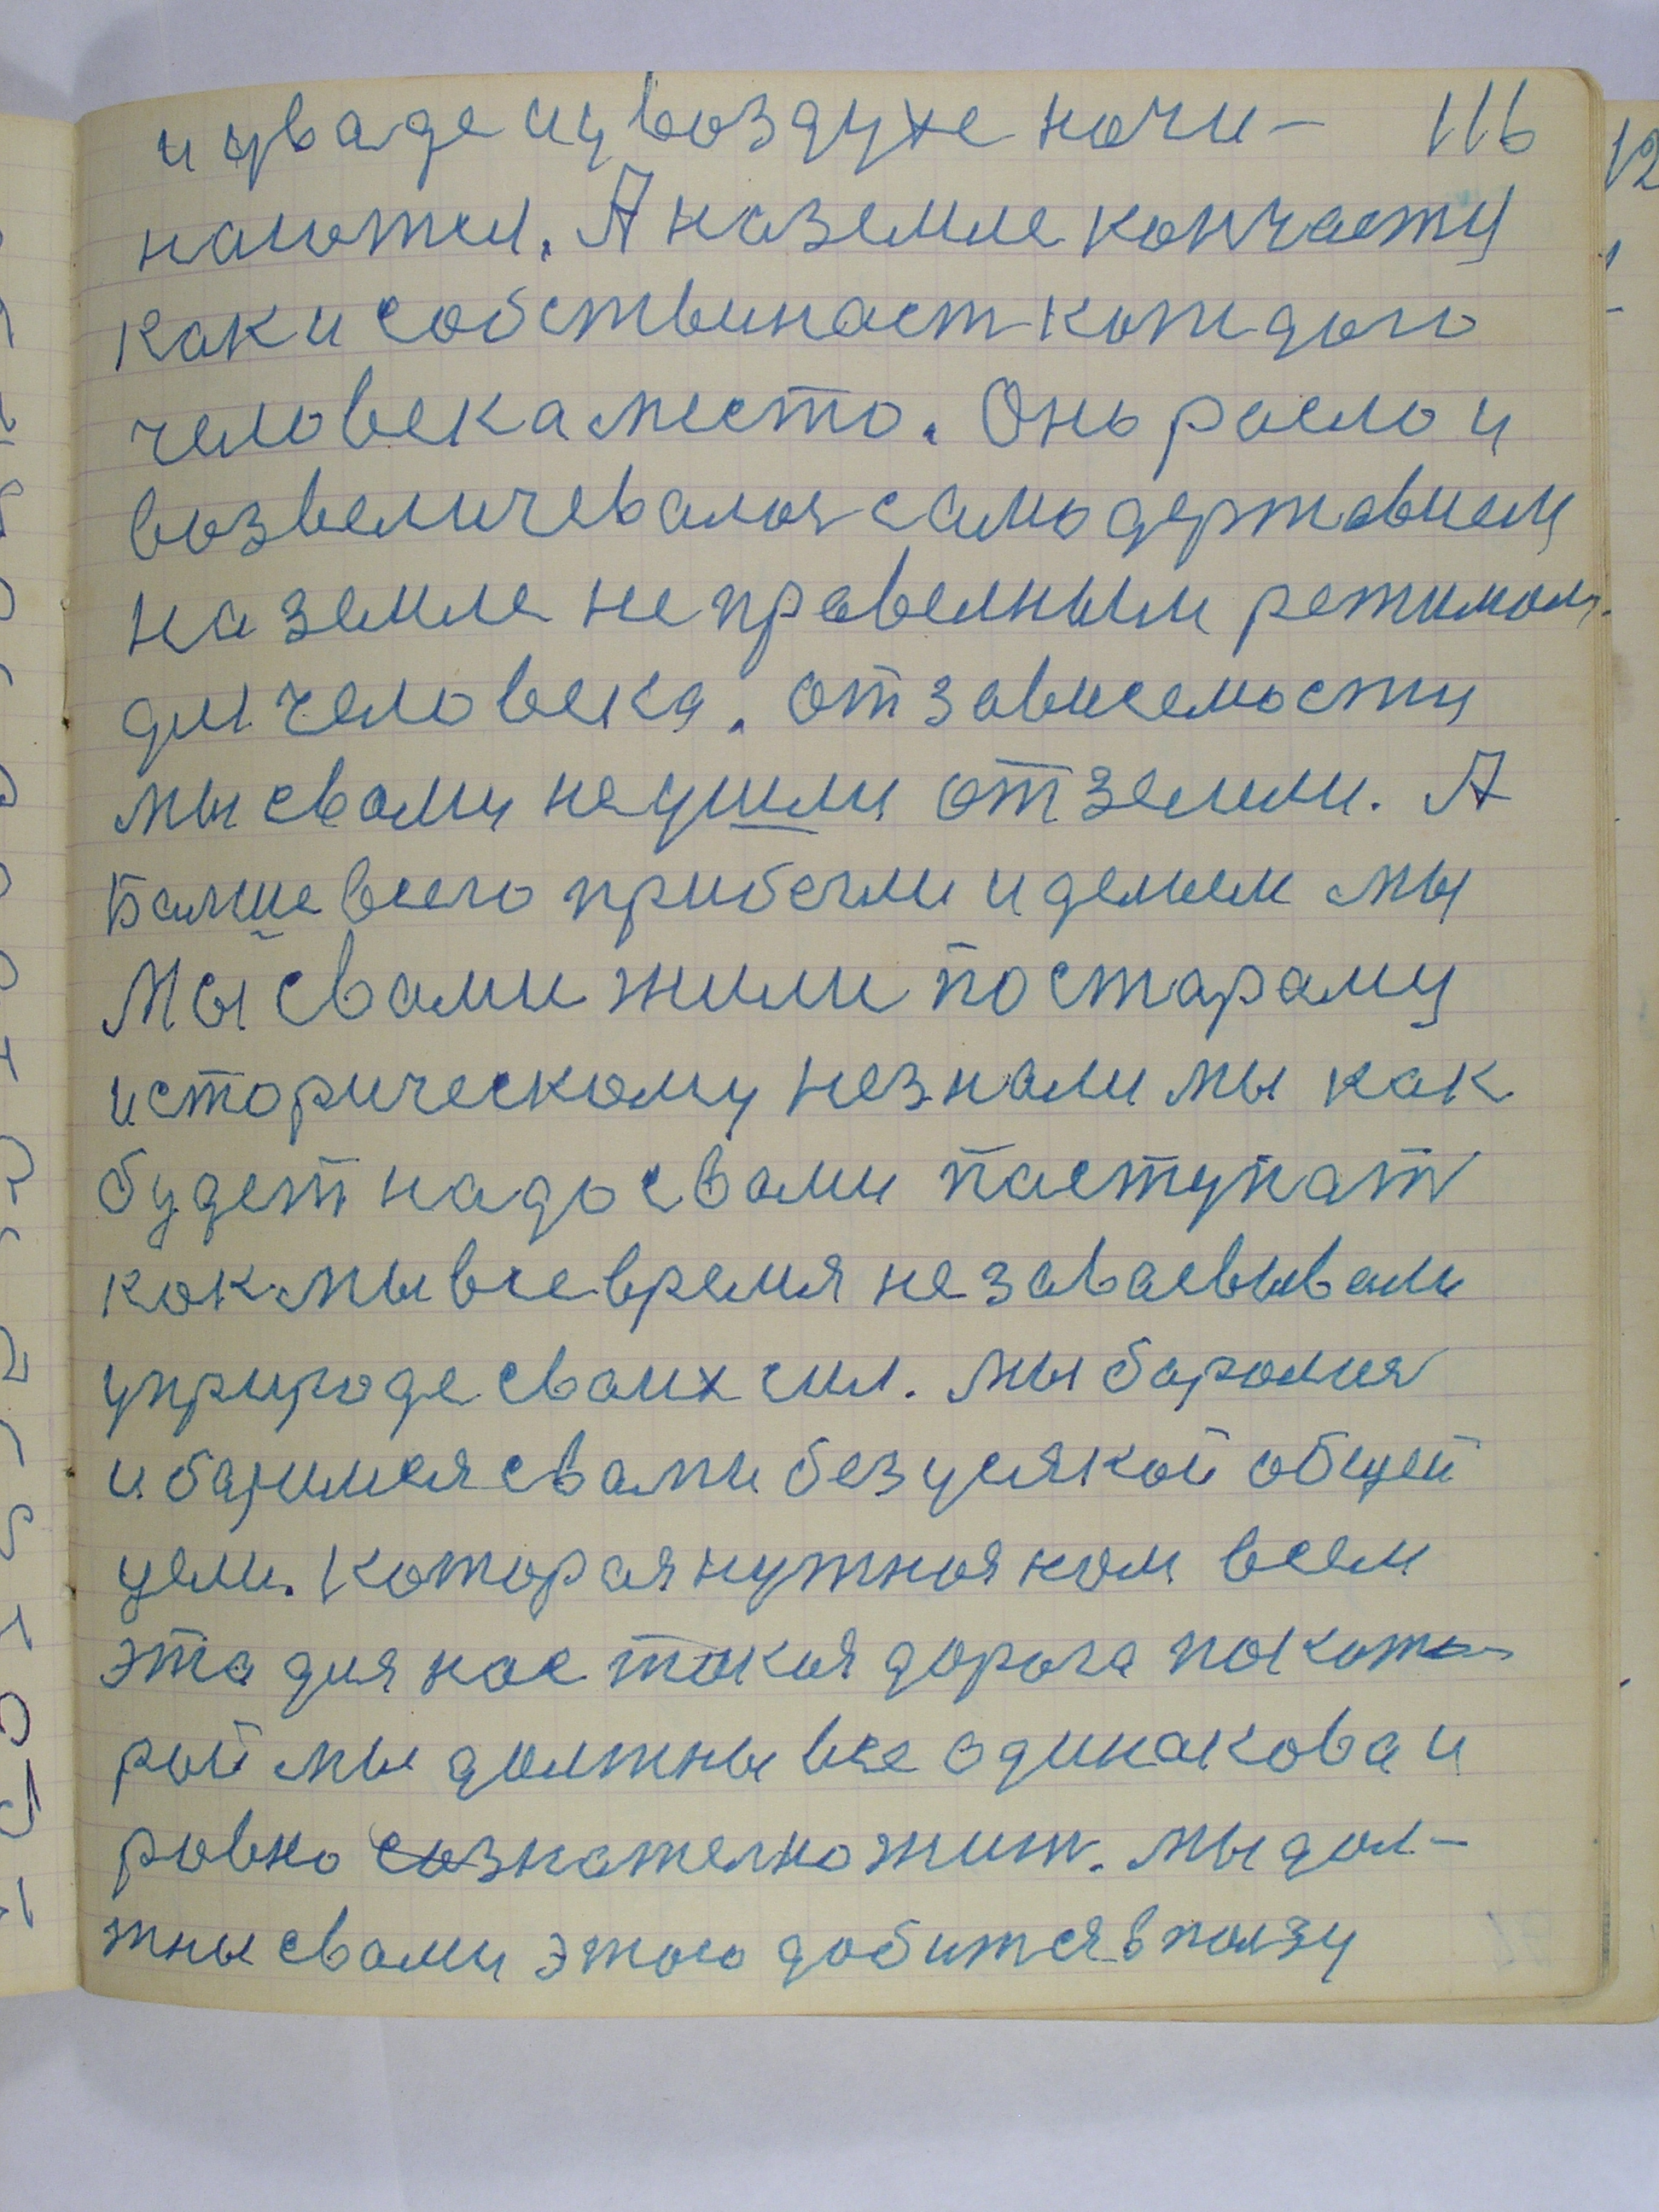 и ув аде и у воздухе начи- 116
наютси. А на земле кончаету
как и собствинаст каждого
человека место. Оно расло и
возвеличевалоя самодержавием
на земле не правелным режимом.
дли человека. от зависемости
мы свами не ушли от земли. А
Балше всего прибегли и делием мы
Мы свами жили постарому
историческому незнали мы как
будет надо свами паступат
как мы все время не заваевывали
уприроде сваих сил. мы баролися
и баримся свами без усякой общей
цели. Которая нужная нам всем
эта для нас такая дорога по кото-
рой мы должны все одинакова и
равно сознателно жит. мы дол-
жны свами этого добится в ползу